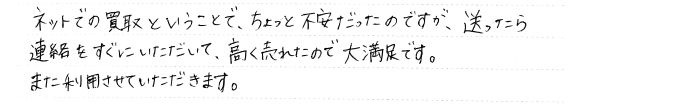 ネットでの買取ということで、ちょっと不安だったのですが、送ったら
連絡をすぐにいただいて、高く売れたので大満足です。
また利用させていただきます。